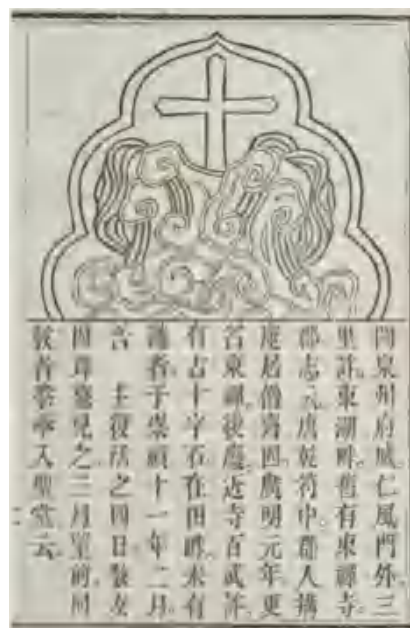 閩泉州府城。仁風門外。三
里許。東湖畔。舊有東禪寺。
郡志元唐乾符中。郡人搆
庵居僧齊固。廣明元年。更
名東禪。後廢。近寺百武許。
有古十字石。在田畔。未有
識者。于崇禎十一年二月。
吾 主復活之四日。敎友
因墓見之。三月望前同
敎者奉入聖堂云。